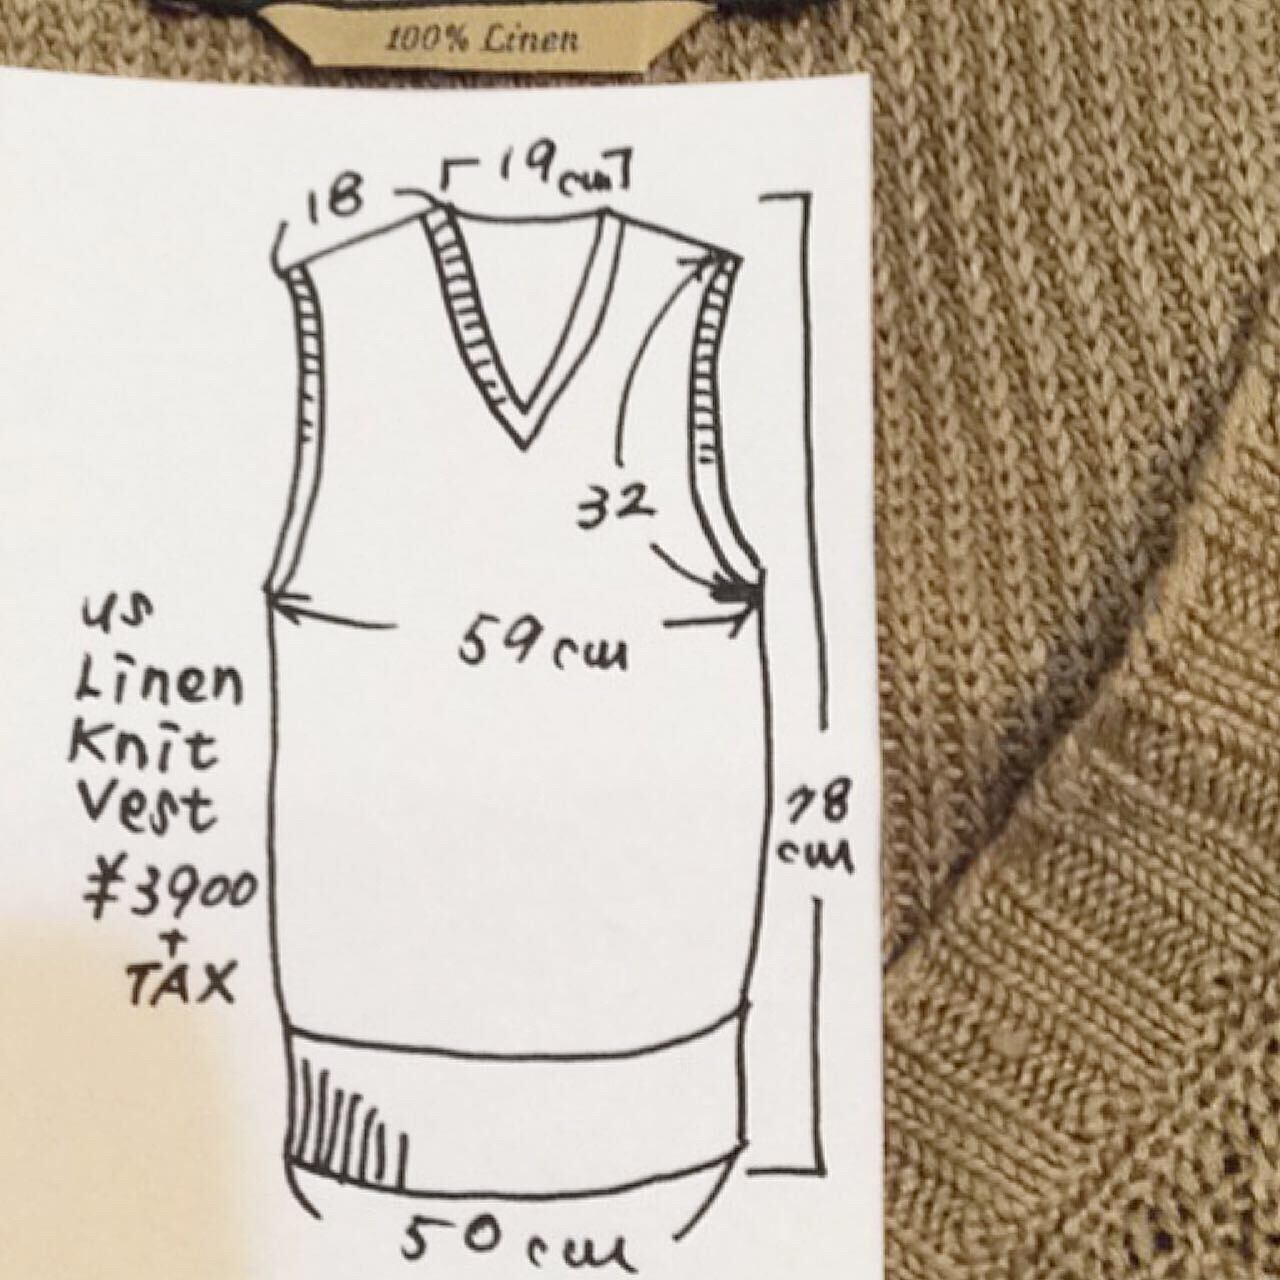 100% Linen
19cm
18
32
59cm
us
Linen
Knit
Vest
¥3900
+
TAX
78
cm
50cm